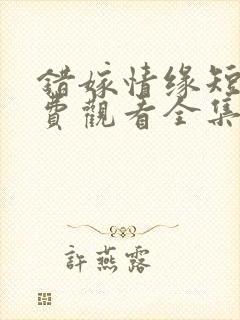 錯嫁情缘短
費觀看全集
許燕露